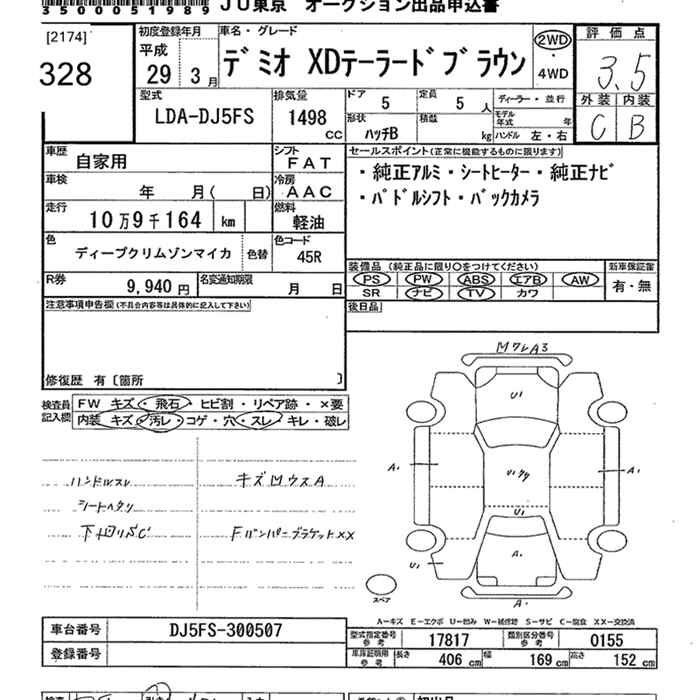 3500051989 JU東京 オークション出品申込書
[2174]
328
初度登録年月 平成 29 3月
車名・グレード デミオ XDテーラードブラウン
2WD・4WD
評価点 3.5
外装 内装
C B
型式 LDA-DJ5FS
排気量 1498 cc
ドア 5
定員 5人
形状 ハッチB
積載 kg
ディーラー・並行
モデル年式 年
ハンドル 左・右
車歴 自家用
シフト FAT
車検 年 月( 日)
冷房 AAC
走行 10万9千164 km
燃料 軽油
色 ディープクリムゾンマイカ 色替
色コード 45R
R券 9,940円
名変通知期限 月 日
セールスポイント(正常に機能するものに限ります)
・純正アルミ・シートヒーター・純正ナビ
・パドルシフト・バックカメラ
装備品 (純正品に限り○をつけてください)
PS PW ABS エアB AW
SR ナビ TV カワ
新車保証書 有・無
後日品
注意事項申告欄(不具合内容等は具体的に記入して下さい)
修復歴 有〔箇所 〕
検査員記入欄
FW キズ・飛石・ヒビ割・リペア跡・×要
内装 キズ・汚レ・コゲ・穴・スレ・キレ・破レ
ハンドルスレ
キズ凹ウスA
シートヘタリ
下回りSC
FバンパーブラケットXX
A3
U1
A1
A1
U1
U1
A1
A1
スペア
A-キズ E-エクボ U-凹み W-補修跡 S-サビ C-腐食 XX-交換済
車台番号 DJ5FS-300507
登録番号
型式指定番号 参考 17817
類別区分番号 参考 0155
車庫証明用 参考 長さ 406cm 幅 169cm 高さ 152cm